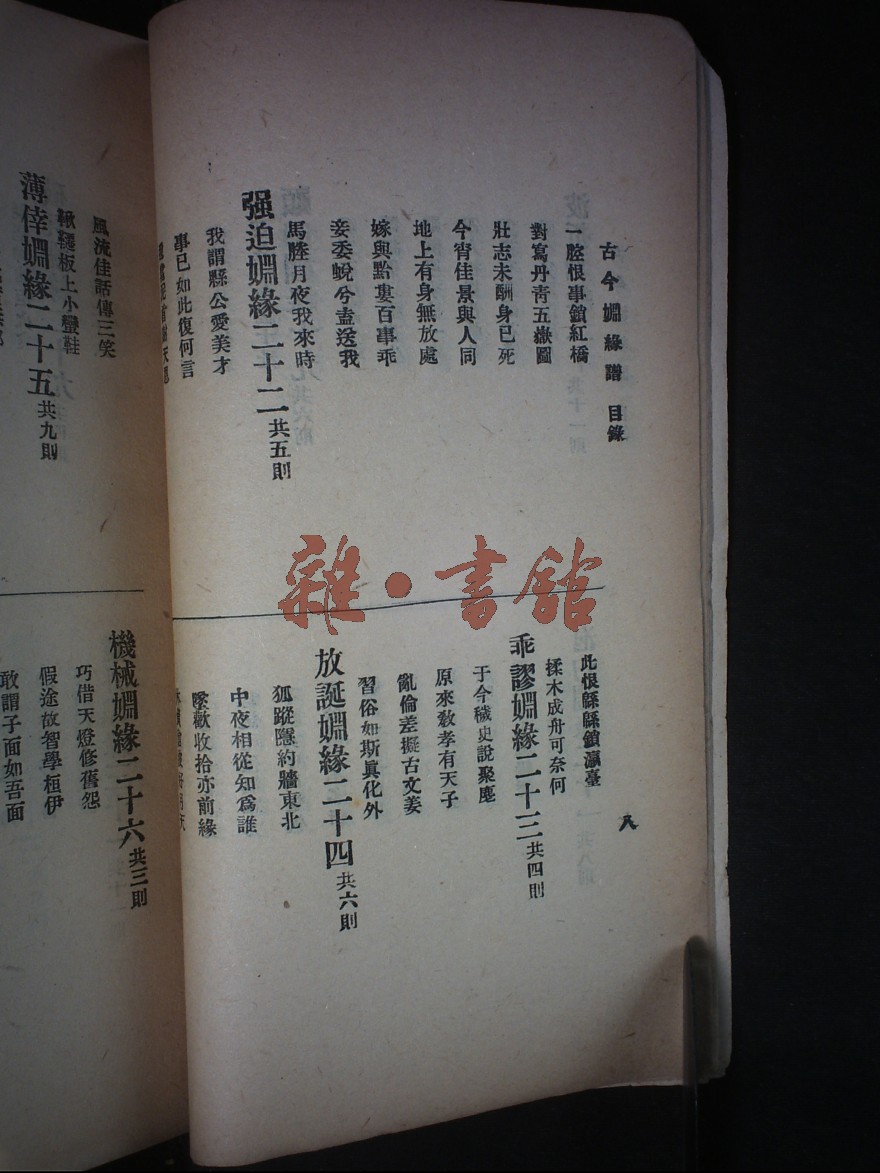 古今婣緣譜 目錄
一腔恨事鎖紅橋
對寫丹靑五嶽圖
壯志未酬身已死
今宵佳景與人同
地上有身無放處
嫁與黔婁百事乖
妾委蛻兮盍送我
馬塍月夜我來時
强迫婣緣二十二 共五則
我謂縣公愛美才
事已如此復何言
八
此恨緜緜鎖瀛臺
揉木成舟可奈何
乖謬婣緣二十三 共四則
于今穢史說聚麀
原來敎孝有天子
亂倫差擬古文姜
習俗如斯眞化外
放誕婣緣二十四 共六則
狐蹤隱約牆東北
中夜相從知爲誰
墜歡收拾亦前緣
風流佳話傳三笑
鞦韆板上小蠻鞋
薄倖婣緣二十五 共九則
機械婣緣二十六 共三則
巧借天燈修舊怨
假途故智學桓伊
敢謂子面如吾面
雜·書館